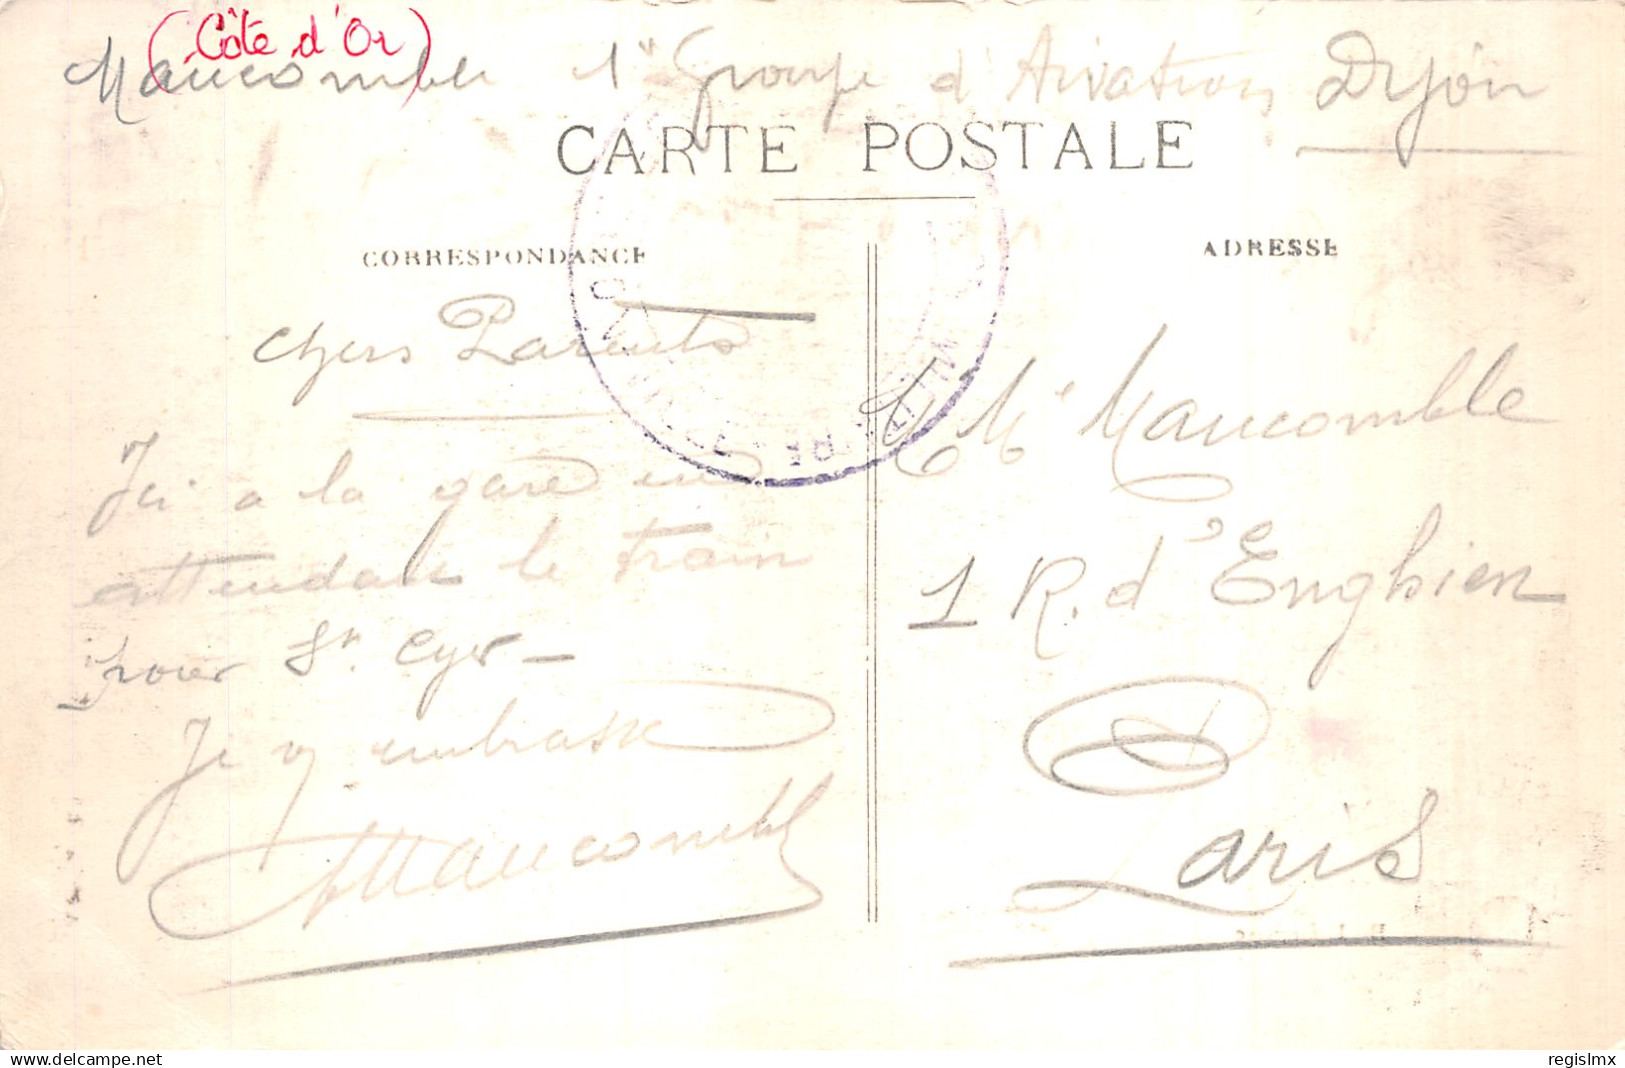 (Côte d'Or)
Maucomble 1er Groupe d'Aivation Dijon
CARTE POSTALE
CORRESPONDANCE
ADRESSE
Chers Parents
Ici a la gare en
attendant le train
pour St. Cyr -
Je v embrasse
Maucomble
M Me Maucomble
1 R. d'Enghien
Paris
MILITAIRE
www.delcampe.net
regislmx